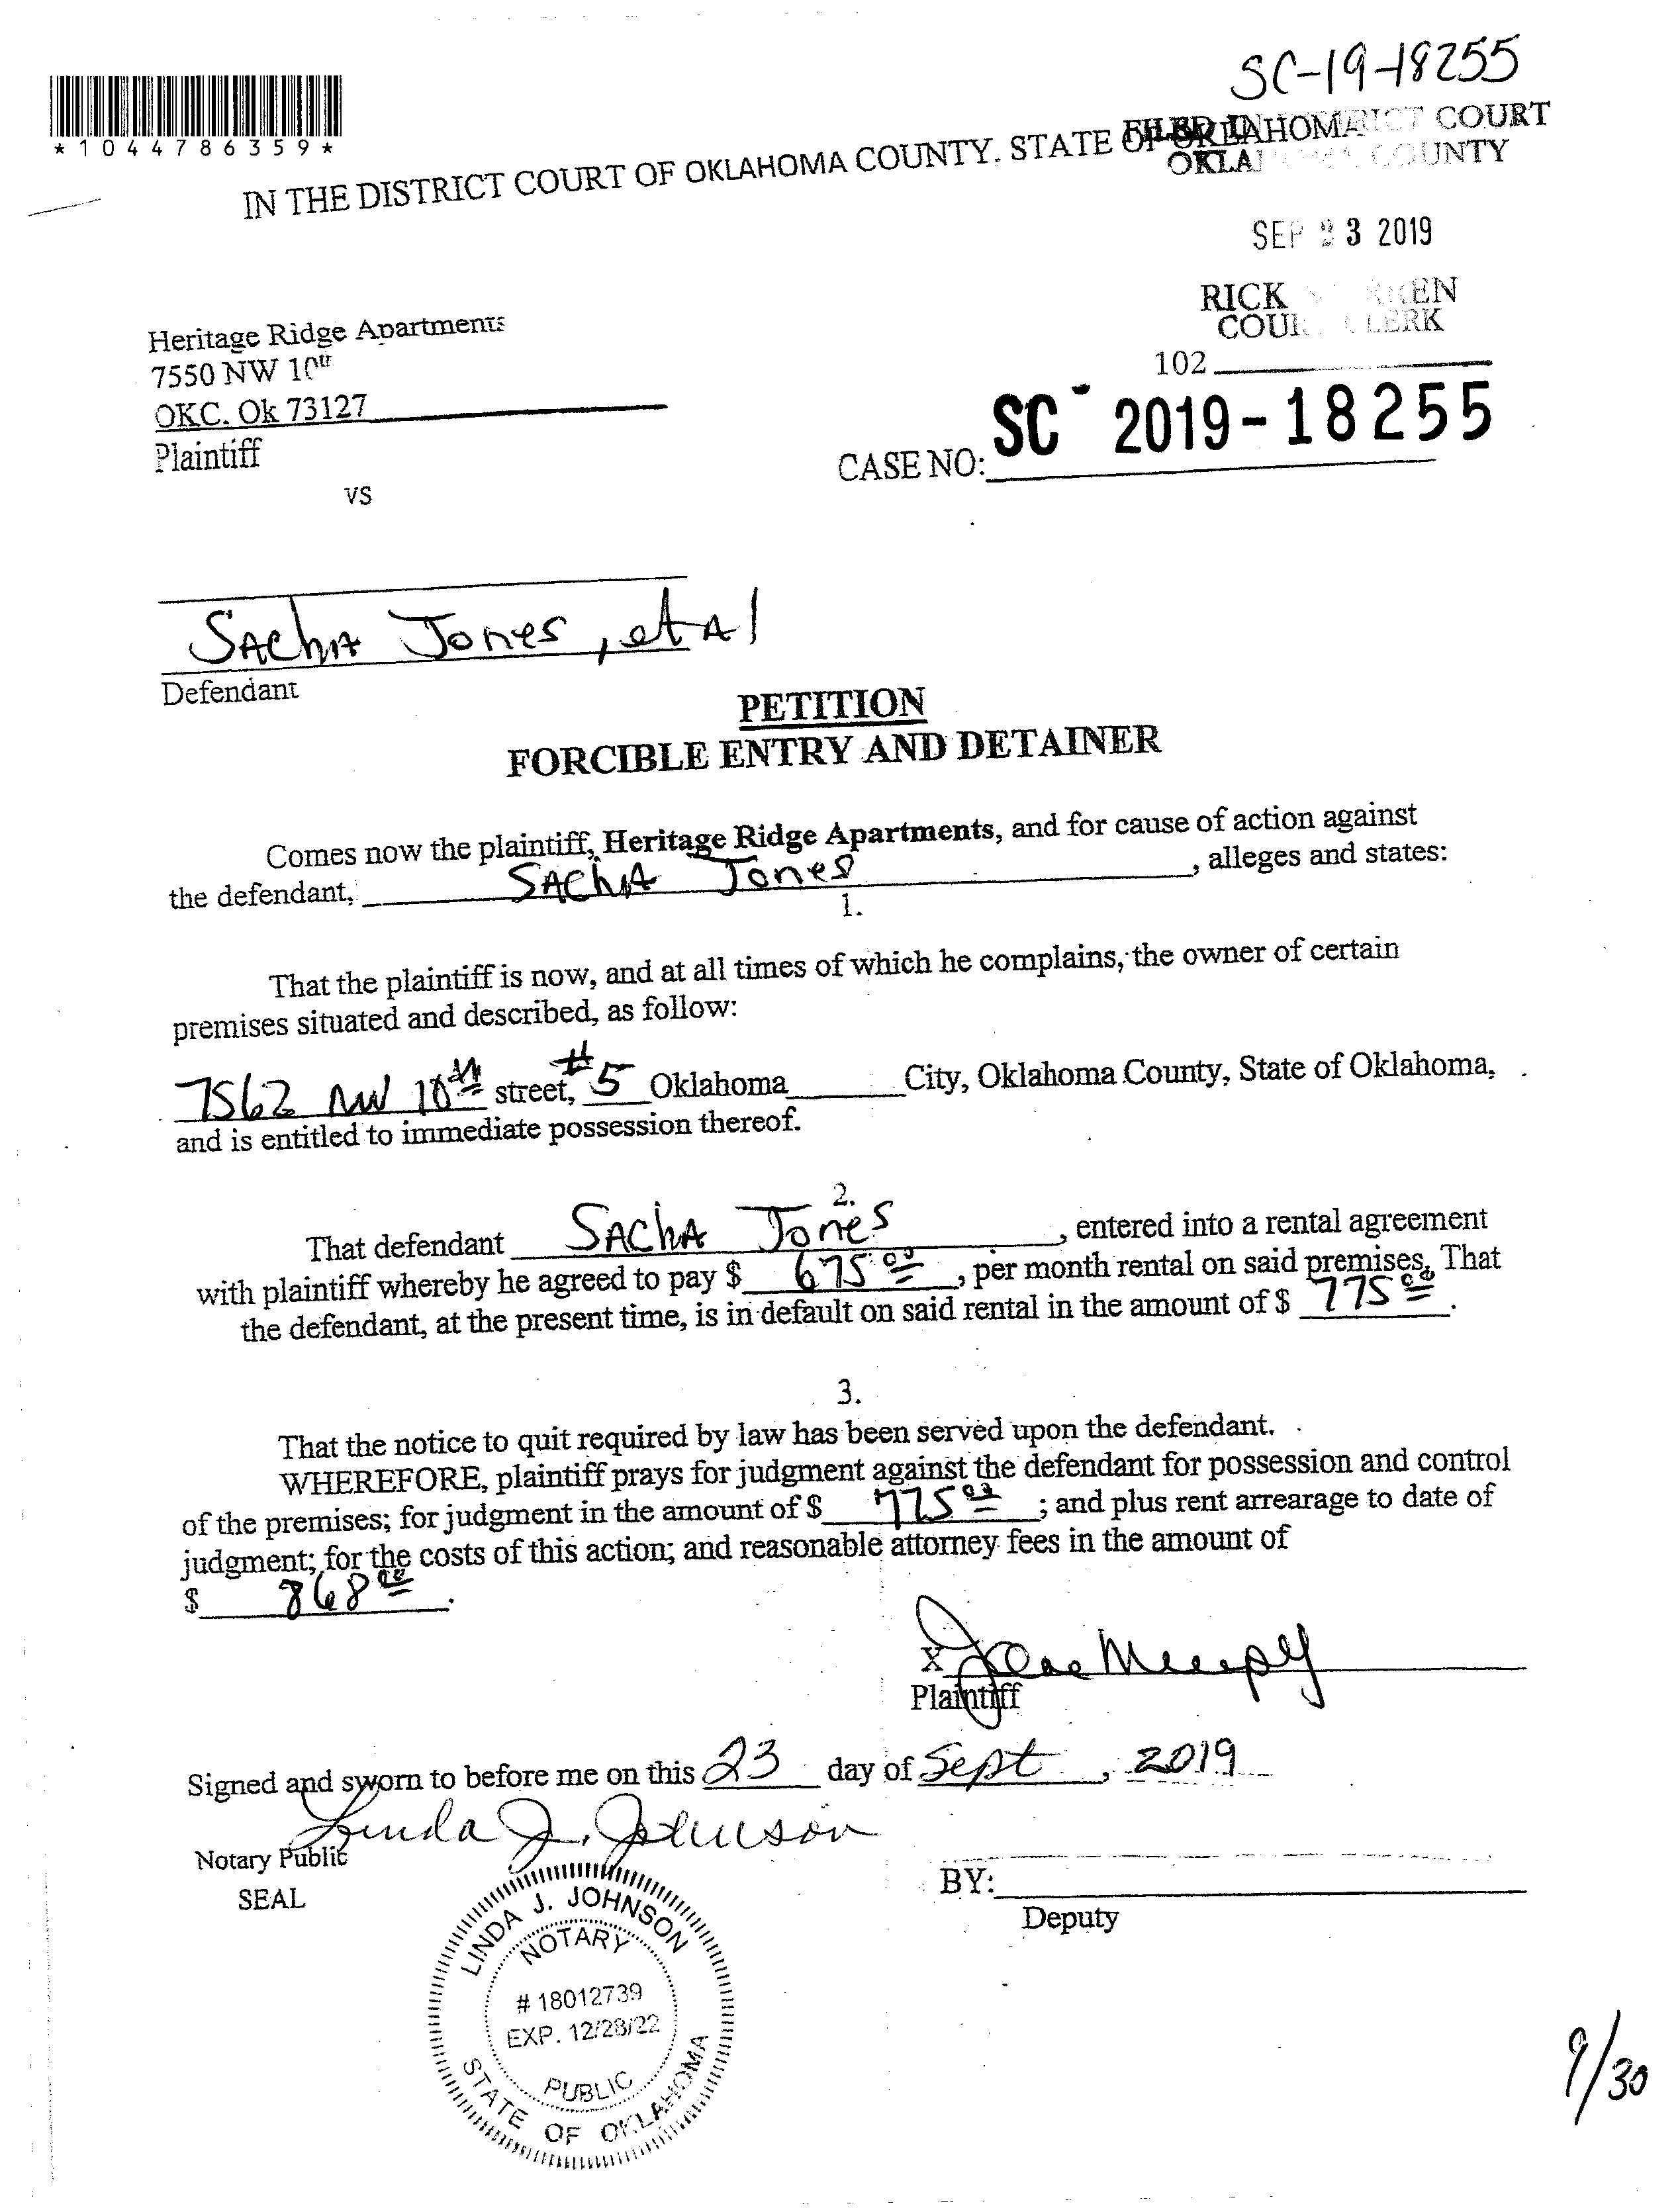 SC-19-18255
*1044786359*
IN THE DISTRICT COURT OF OKLAHOMA COUNTY. STATE OF OKLAHOMA
FILED IN DISTRICT COURT
OKLAHOMA COUNTY
SEP 23 2019
RICK WARREN
COURT CLERK
102
Heritage Ridge Apartments
7550 NW 10th
OKC. Ok 73127
Plaintiff
SC- 2019-18255
CASE NO:
vs
Sacha Jones, et al
Defendant
PETITION
FORCIBLE ENTRY AND DETAINER
Comes now the plaintiff, Heritage Ridge Apartments, and for cause of action against
the defendant, Sacha Jones, alleges and states:
1.
That the plaintiff is now, and at all times of which he complains, the owner of certain
premises situated and described, as follow:
7562 NW 10th street, #5 Oklahoma City, Oklahoma County, State of Oklahoma,
and is entitled to immediate possession thereof.
2.
That defendant Sacha Jones, entered into a rental agreement
with plaintiff whereby he agreed to pay $ 675 00, per month rental on said premises, That
the defendant, at the present time, is in default on said rental in the amount of $ 775 00.
3.
That the notice to quit required by law has been served upon the defendant.
WHEREFORE, plaintiff prays for judgment against the defendant for possession and control
of the premises; for judgment in the amount of $ 775 00; and plus rent arrearage to date of
judgment; for the costs of this action; and reasonable attorney fees in the amount of
$ 868 00.
X
Plaintiff
Signed and sworn to before me on this 23 day of Sept, 2019
Linda J. Johnson
Notary Public
SEAL
BY:
Deputy
LINDA J. JOHNSON
NOTARY
# 18012739
EXP. 12/28/22
PUBLIC
STATE OF OKLAHOMA
9/30